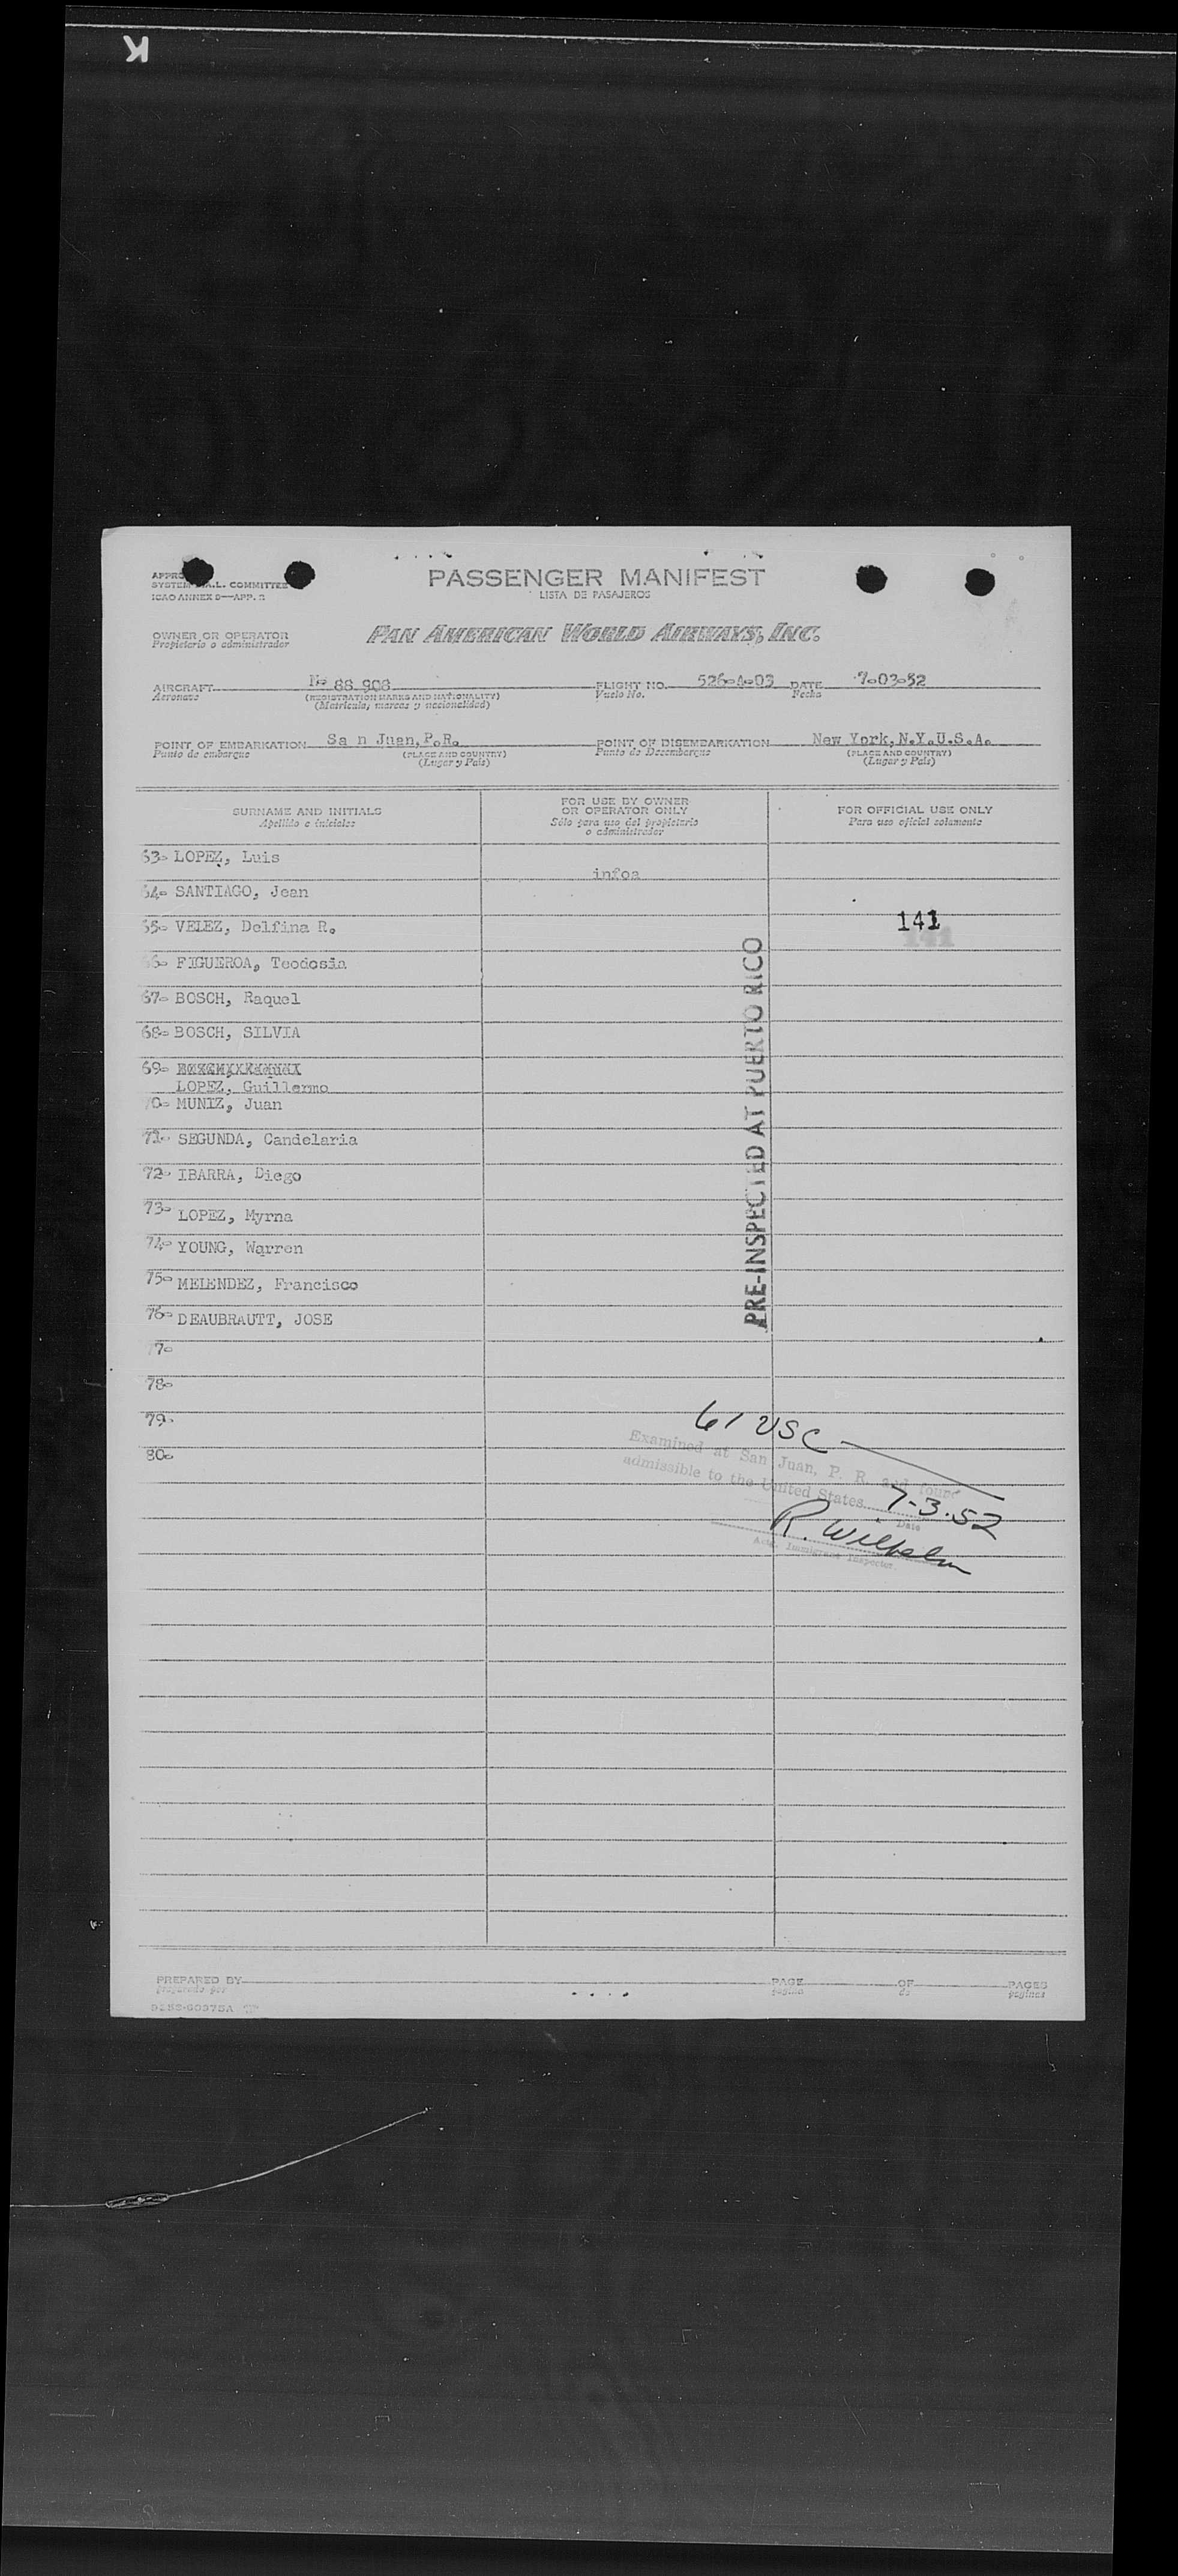 K
PASSENGER MANIFEST
LISTA DE PASAJEROS
SYSTEM A.L. COMMITTEE
ICAO ANNEX 9—APP. 3
OWNER OR OPERATOR
Propietario o administrador
PAN AMERICAN WORLD AIRWAYS, INC.
AIRCRAFT 88 908 FLIGHT NO. 526-A-03 DATE 7-03-52
Aeronave (REGISTRATION MARKS AND NATIONALITY) Vuelo No. Fecha
(Matricula, marcas y nacionalidad)
POINT OF EMBARKATION Sa n Juan, P.R. POINT OF DISEMBARKATION New York, N.Y.U.S.A.
Punto de embarque (PLACE AND COUNTRY) Punto de Desembarque (PLACE AND COUNTRY)
(Lugar y Pais) (Lugar y Pais)
SURNAME AND INITIALS FOR USE BY OWNER OR OPERATOR ONLY FOR OFFICIAL USE ONLY
Apellido e iniciales Sólo para uso del propietario o administrador Para uso oficial solamente
63- LOPEZ, Luis
infoa
64- SANTIAGO, Jean
65- VELEZ, Delfina R. 141
66- FIGUEROA, Teodosia
67- BOSCH, Raquel
68- BOSCH, SILVIA
69-
LOPEZ, Guillermo
70- MUNIZ, Juan
71- SEGUNDA, Candelaria
72- IBARRA, Diego
73- LOPEZ, Myrna
74- YOUNG, Warren
75- MELENDEZ, Francisco
76- DEAUBRAUTT, JOSE
77-
78-
79-
80-
PRE-INSPECTED AT PUERTO RICO
61 USC
Examined at San Juan, P. R. and found
admissible to the United States 7-3-52
Date
R. Wilhelm
Immigrant Inspector
PREPARED BY PAGE OF PAGES
preparado por página de páginas